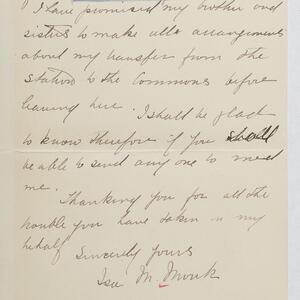 I have promised my brother and
sisters to make all arrangements
about my transfer from the
station to the Commons before
leaving here. I shall be glad
to know therefore if you
be able to send any one to meet
me.
Thanking you for all the
trouble you have taken in my
behalf
Sincerely yours
Isa M. Monk